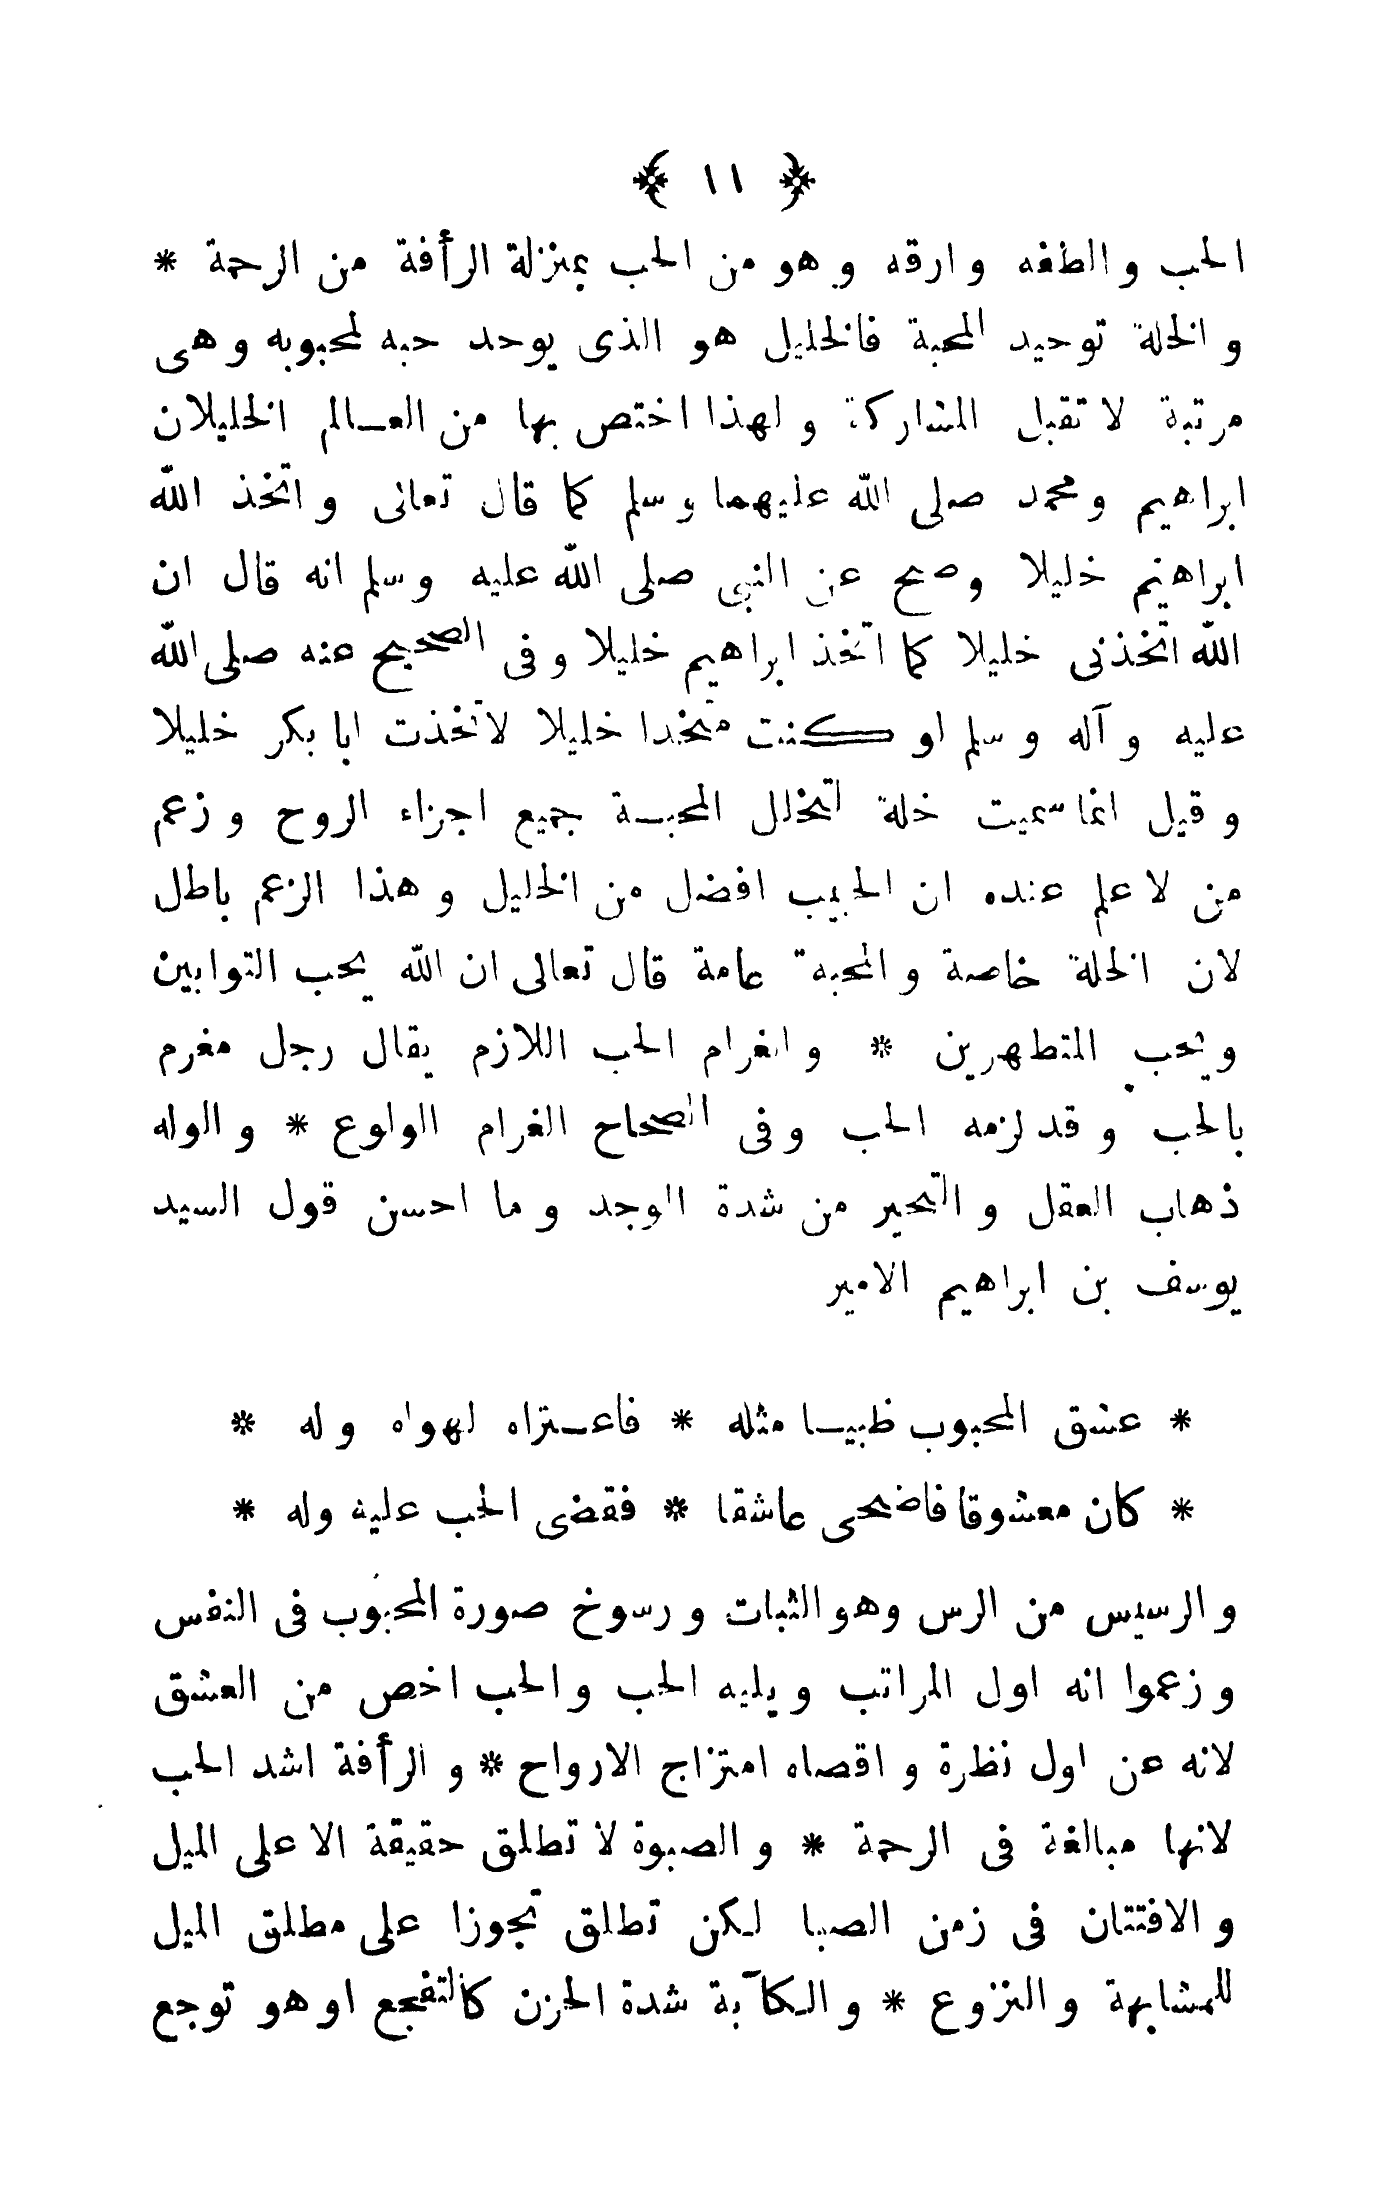 ﴿ ١١ ﴾
الحب والطفه وارقه وهو من الحب بمنزلة الرأفة من الرحمة *
والخلة توحيد المحبة فالخليل هو الذى يوحد حبه لمحبوبه وهى
مرتبة لا تقبل المشاركة ولهذا اختص بها من العالم الخليلان
ابراهيم ومحمد صلى الله عليهما وسلم كما قال تعالى واتخذ الله
ابراهيم خليلا وصح عن النبى صلى الله عليه وسلم انه قال ان
الله اتخذنى خليلا كما اتخذ ابراهيم خليلا وفى الصحيح عنه صلى الله
عليه وآله وسلم لو كنت متخذا خليلا لاتخذت ابا بكر خليلا
وقيل انما سميت خلة لتخلل المحبة جميع اجزاء الروح وزعم
من لا علم عنده ان الحبيب افضل من الخليل وهذا الزعم باطل
لان الخلة خاصة والمحبة عامة قال تعالى ان الله يحب التوابين
ويحب المتطهرين * والغرام الحب اللازم يقال رجل مغرم
بالحب وقد لزمه الحب وفى الصحاح الغرام الولوع * والوله
ذهاب العقل والتحير من شدة الوجد وما احسن قول السيد
يوسف بن ابراهيم الامير
* عشق المحبوب ظبيا مثله * فاعتراه لهواه وله *
* كان معشوقا فاضحى عاشقا * فقضى الحب عليه وله *
والرسيس من الرس وهو الثبات ورسوخ صورة المحبوب فى النفس
وزعموا انه اول المراتب ويليه الحب والحب اخص من العشق
لانه عن اول نظرة واقصاه امتزاج الارواح * والرأفة اشد الحب
لانها مبالغة فى الرحمة * والصبوة لا تطلق حقيقة الا على الميل
والافتتان فى زمن الصبا لكن تطلق تجوزا على مطلق الميل
للمشابهة والنزوع * والكآبة شدة الحزن كالتفجع او هو توجع